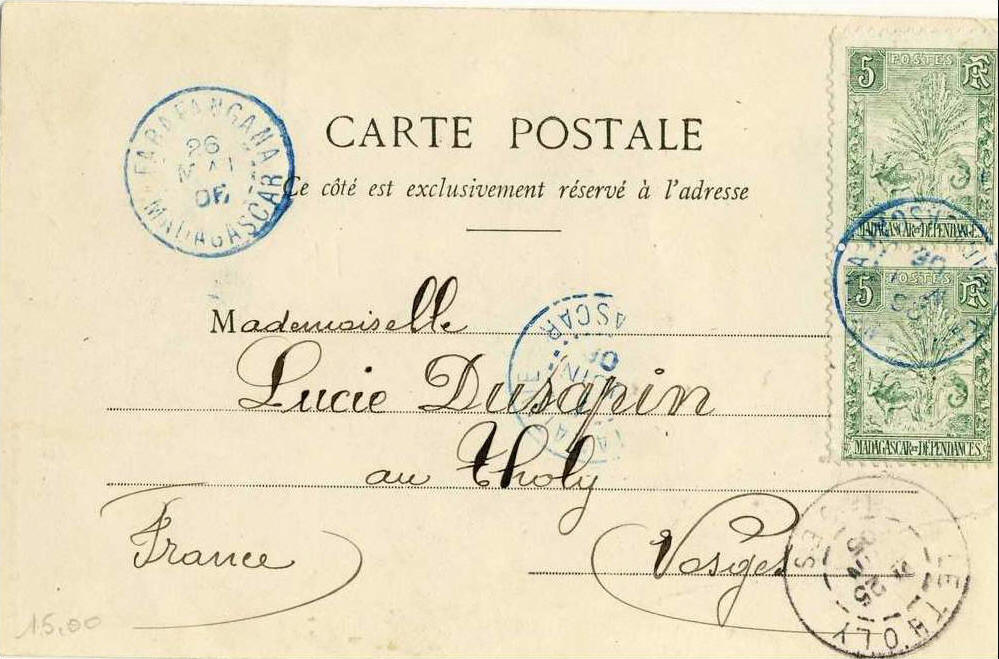 CARTE POSTALE
Ce côté est exclusivement réservé à l'adresse
FARAFANGANA
26
MAI
06
MADAGASCAR
5 POSTES RF
MADAGASCAR ET DÉPENDANCES
5 POSTES RF
MADAGASCAR ET DÉPENDANCES
Mademoiselle
Lucie Dusapin
au Tholy
France
Vosges
ASCAR
LE THOLY
25
15,00